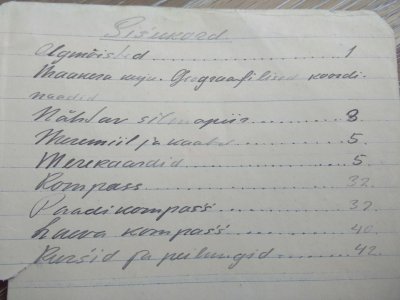 Sisukord
Algmõisted 1
Maakera kuju. Geograafilised koordi-
naadid
Nähtav silmapiir 3
Meremiil ja kaabel 5.
Merekaardid 5.
Kompass 32.
Paadikompass 39.
Laeva kompass 40.
Kursid ja peilungid 42.